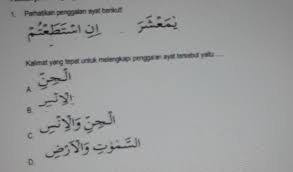 1. Perhatikan penggalan ayat berikut!
يٰمَعْشَرَ ... اِنِ اسْتَطَعْتُمْ
Kalimat yang tepat untuk melengkapi penggalan ayat tersebut yaitu ....
A. الْجِنِّ
B. الْاِنْسِ
C. الْجِنِّ وَالْاِنْسِ
D. السَّمٰوٰتِ وَالْاَرْضِ